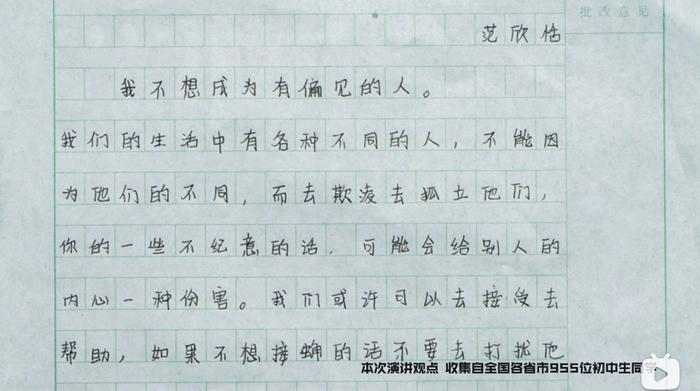 批改意见
范欣怡
我不想成为有偏见的人。
我们的生活中有各种不同的人，不能因
为他们的不同，而去欺凌去孤立他们，
你的一些不纪意的话，可能会给别人的
内心一种伤害。我们或许可以去接受去
帮助，如果不想接蛹的话不要去打扰他
本次演讲观点 收集自全国各省市955位初中生同学